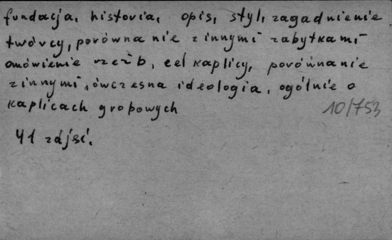 fundacja, historia, opis, styl, zagadnienie
twórcy, porównanie z innymi zabytkami
omówienie rzeźb, cel kaplicy, porównanie
z innymi, ówczesna ideologia, ogólnie o
kaplicach grobowych
10/753
41 zdjęć.